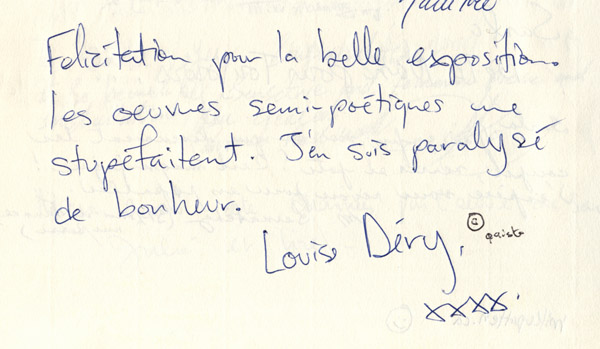 Felicitation pour la belle exposition.
les oeuvres semi-poétiques me
stupéfaitent. J'en suis paralysé
de bonheur.
Louise Déry,
xxxx.